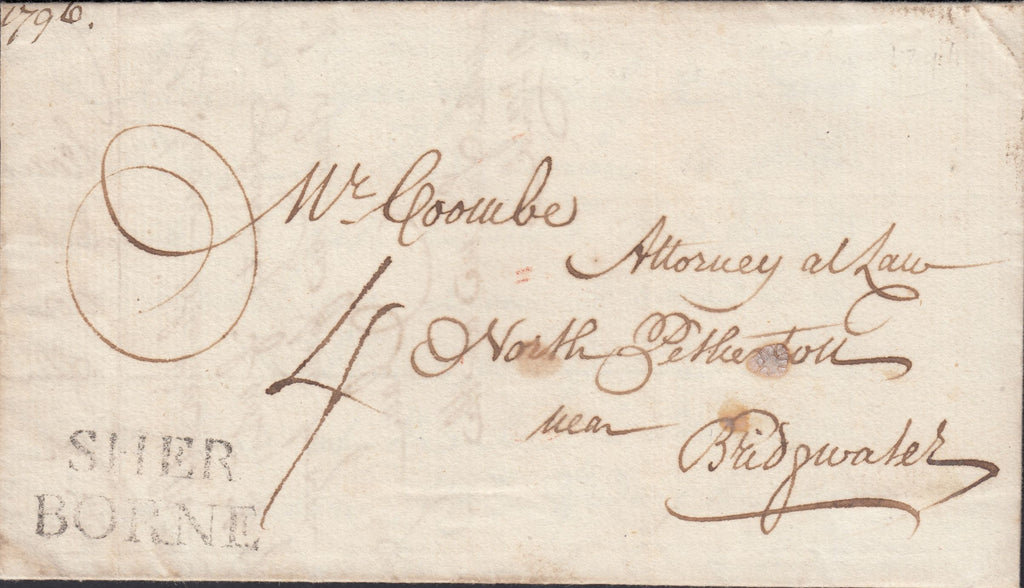 1796.
Mr Coombe
Attorney at Law
4
North Petherton
near
Bridgwater
SHER
BORNE